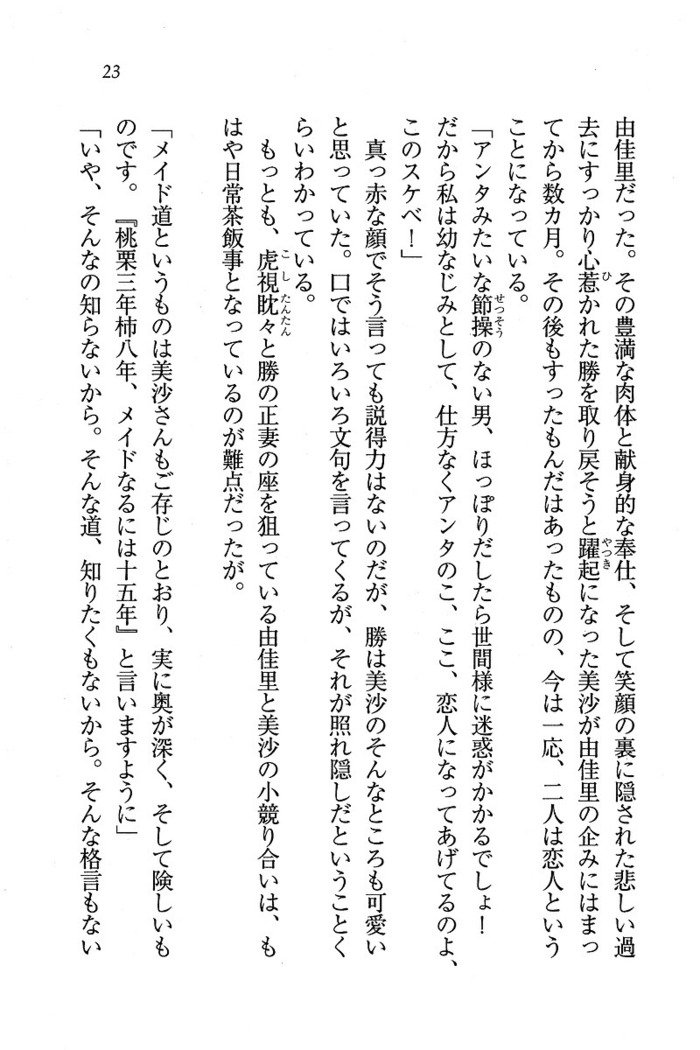 23
由佳里だった。その豊満な肉体と献身的な奉仕、そして笑顔の裏に隠された悲しい過
去にすっかり心惹かれた勝を取り戻そうと躍起になった美沙が由佳里の企みにはまっ
てから数カ月。その後もすったもんだはあったものの、今は一応、二人は恋人という
ことになっている。
「アンタみたいな節操のない男、ほっぽりだしたら世間様に迷惑がかかるでしょ！
だから私は幼なじみとして、仕方なくアンタのこ、ここ、恋人になってあげてるのよ、
このスケベ！」
真っ赤な顔でそう言っても説得力はないのだが、勝は美沙のそんなところも可愛い
と思っていた。口ではいろいろ文句を言ってくるが、それが照れ隠しだということく
らいわかっている。
もっとも、虎視眈々と勝の正妻の座を狙っている由佳里と美沙の小競り合いは、も
はや日常茶飯事となっているのが難点だったが。
「メイド道というものは美沙さんもご存じのとおり、実に奥が深く、そして険しいも
のです。『桃栗三年柿八年、メイドなるには十五年』と言いますように」
「いや、そんなの知らないから。そんな道、知りたくもないから。そんな格言もない